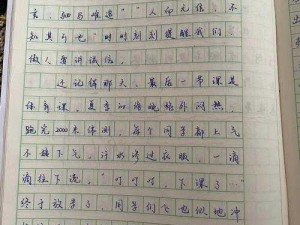 言，驷马难追""人而无信，不
知其可也"时时刻刻提醒我们，
做人要讲诚信。
还记得那天，最后一节课是
体育课，夏季的傍晚格外闷热，
跑完2000米体测，每个同学都上气
不接下气，汗水浸过衣服，一滴
滴往下流，"叮叮叮，下课了"
终于放学了，同学们飞也似地冲